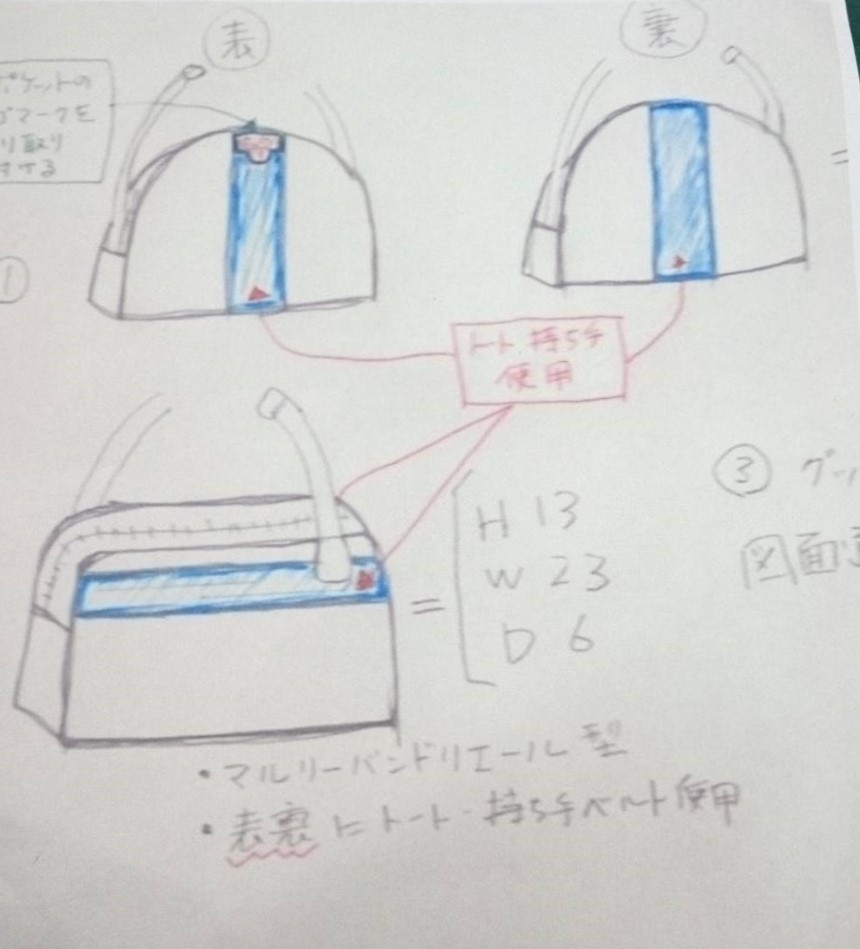 表
裏
ポケットの
ゴマークを
り取り
付ける
①
トート.持ち手
使用
=
= H 13
W 23
D 6
③ グッ
図面
・マルリーバンドリエール型
・表裏にトート・持ち手ベルト使用